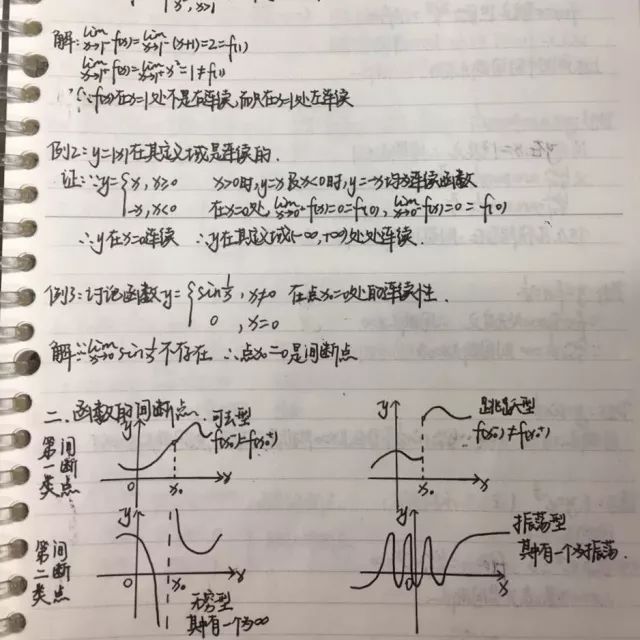 x², x>1
解:lim x→1⁻ f(x)=lim x→1⁻ (x+1)=2=f(1)
lim x→1⁺ f(x)=lim x→1⁺ x²=1≠f(1)
∴f(x)在x=1处不是连续,而只在x=1处左连续
例2:y=|x|在其定义域是连续的.
证:∵y={x, x≥0 x>0时,y=x及x<0时,y=-x均为连续函数
-x, x<0 在x=0处, lim x→0⁺ f(x)=0=f(0), lim x→0⁻ f(x)=0=f(0)
∴y在x=0连续 ∴y在其定义域(-∞,+∞)处处连续.
例3:讨论函数y={sin 1/x, x≠0 在点x₀=0处的连续性.
0, x=0
解:∵lim x→0 sin 1/x 不存在. ∴点x₀=0是间断点
二.函数的间断点.
第一类
间断点
y
可去型
f(x₀⁻)=f(x₀⁺)
0
x₀
x
y
跳跃型
f(x₀⁻)≠f(x₀⁺)
0
x₀
x
第二类
间断点
y
0
x₀
x
无穷型
其中有一个为∞
y
振荡型
其中有一个为振荡.
0
x